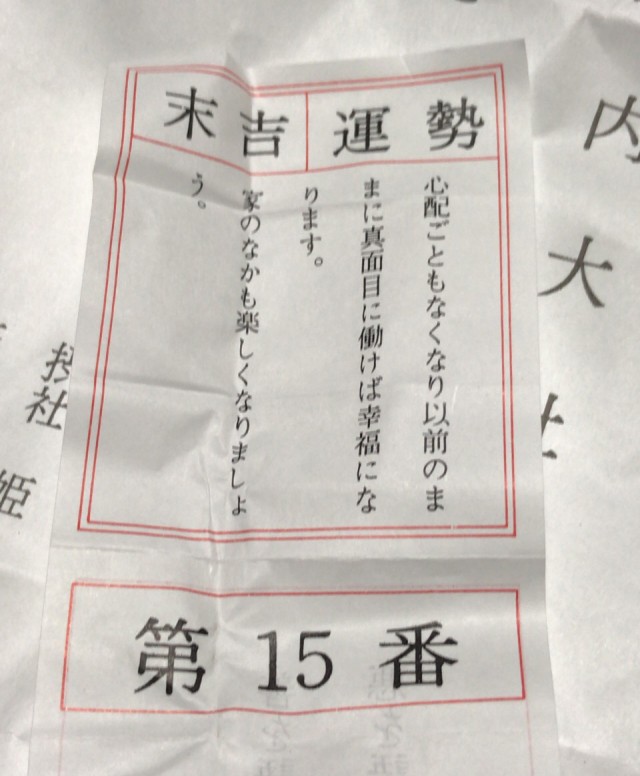 運勢
末吉
心配ごともなくなり以前のま
まに真面目に働けば幸福にな
ります。
家のなかも楽しくなりましょ
う。
第15番
内
大
社
姫